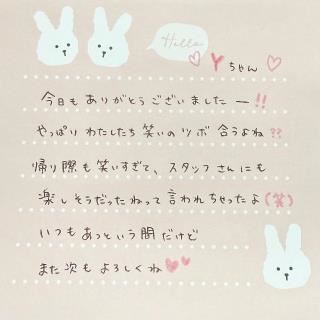 Hello
♡ Yちゃん ♡
今日もありがとうございましたー!!
やっぱりわたしたち笑いのツボ合うよね??
帰り際も笑いすぎて、スタッフさんにも
楽しそうだったねって言われちゃったよ(笑)
いつもあっという間だけど
また次もよろしくね♥♥